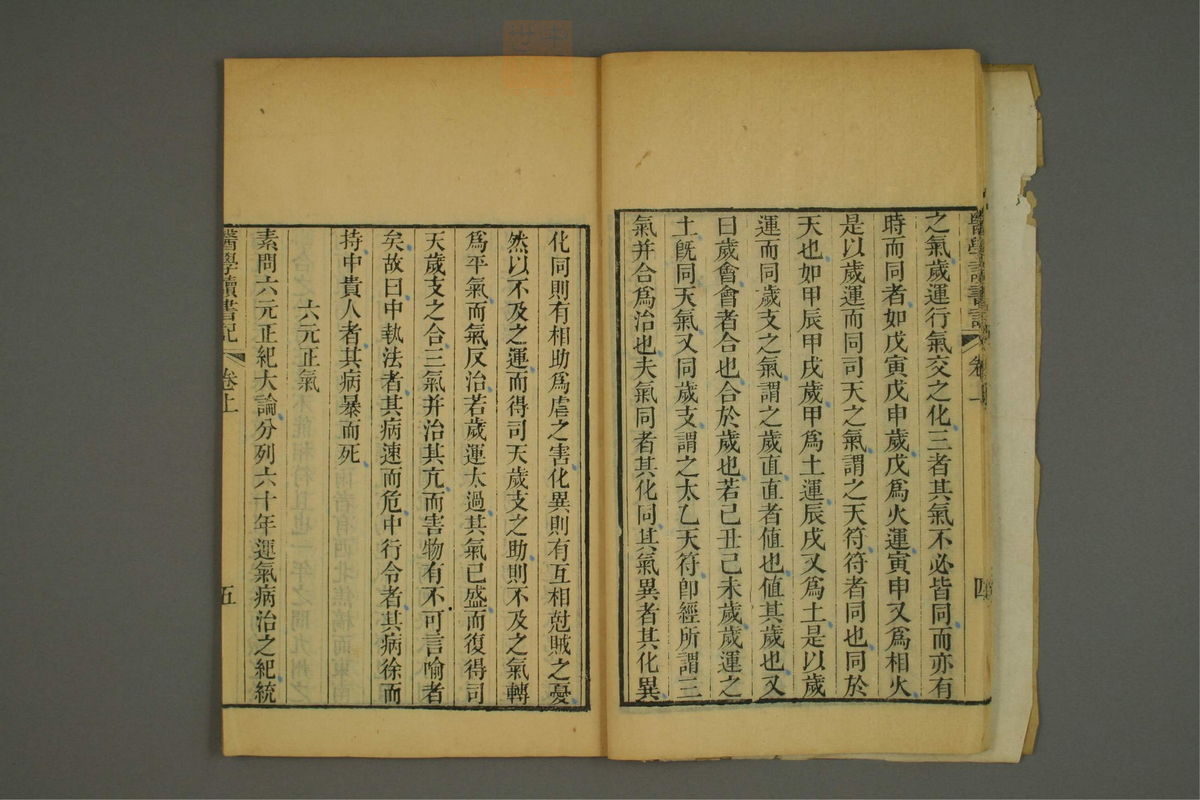 醫學讀書記 卷上 四
之氣歲運行氣交之化三者其氣不必皆同而亦有
時而同者如戊寅戊申歲戊為火運寅申又為相火
是以歲運而同司天之氣謂之天符符者同也同於
天也如甲辰甲戌歲甲為土運辰戌又為土是以歲
運而同歲支之氣謂之歲直直者值也值其歲也又
曰歲會會者合也合於歲也若己丑己未歲歲運之
土既同天氣又同歲支謂之太乙天符卽經所謂三
氣并合為治也夫氣同者其化同其氣異者其化異
化同則有相助為虐之害化異則有互相尅賊之憂
然以不及之運而得司天歲支之助則不及之氣轉
為平氣而氣反治若歲運太過其氣已盛而復得司
天歲支之合三氣并治其亢而害物有不可言喻者
矣故曰中執法者其病速而危中行令者其病徐而
持中貴人者其病暴而死
六元正氣
素問六元正紀大論分列六十年運氣病治之紀統
醫學讀書記 卷上 五